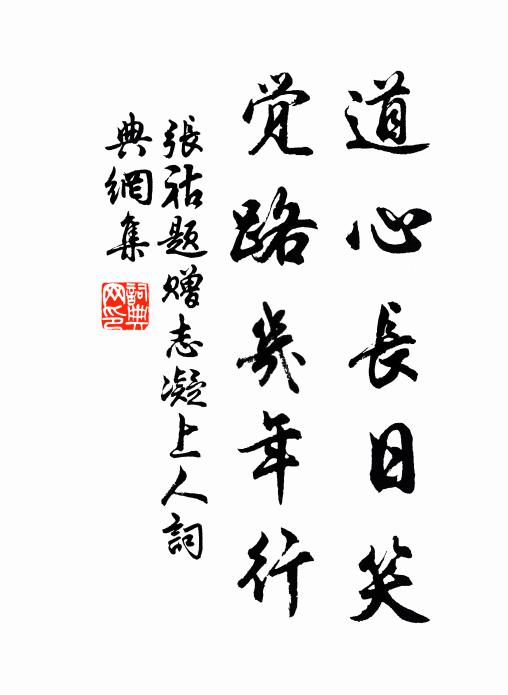 道心長日笑
覚路幾年行
張祜題贈志凝上人詞
典網集
詞典
网印